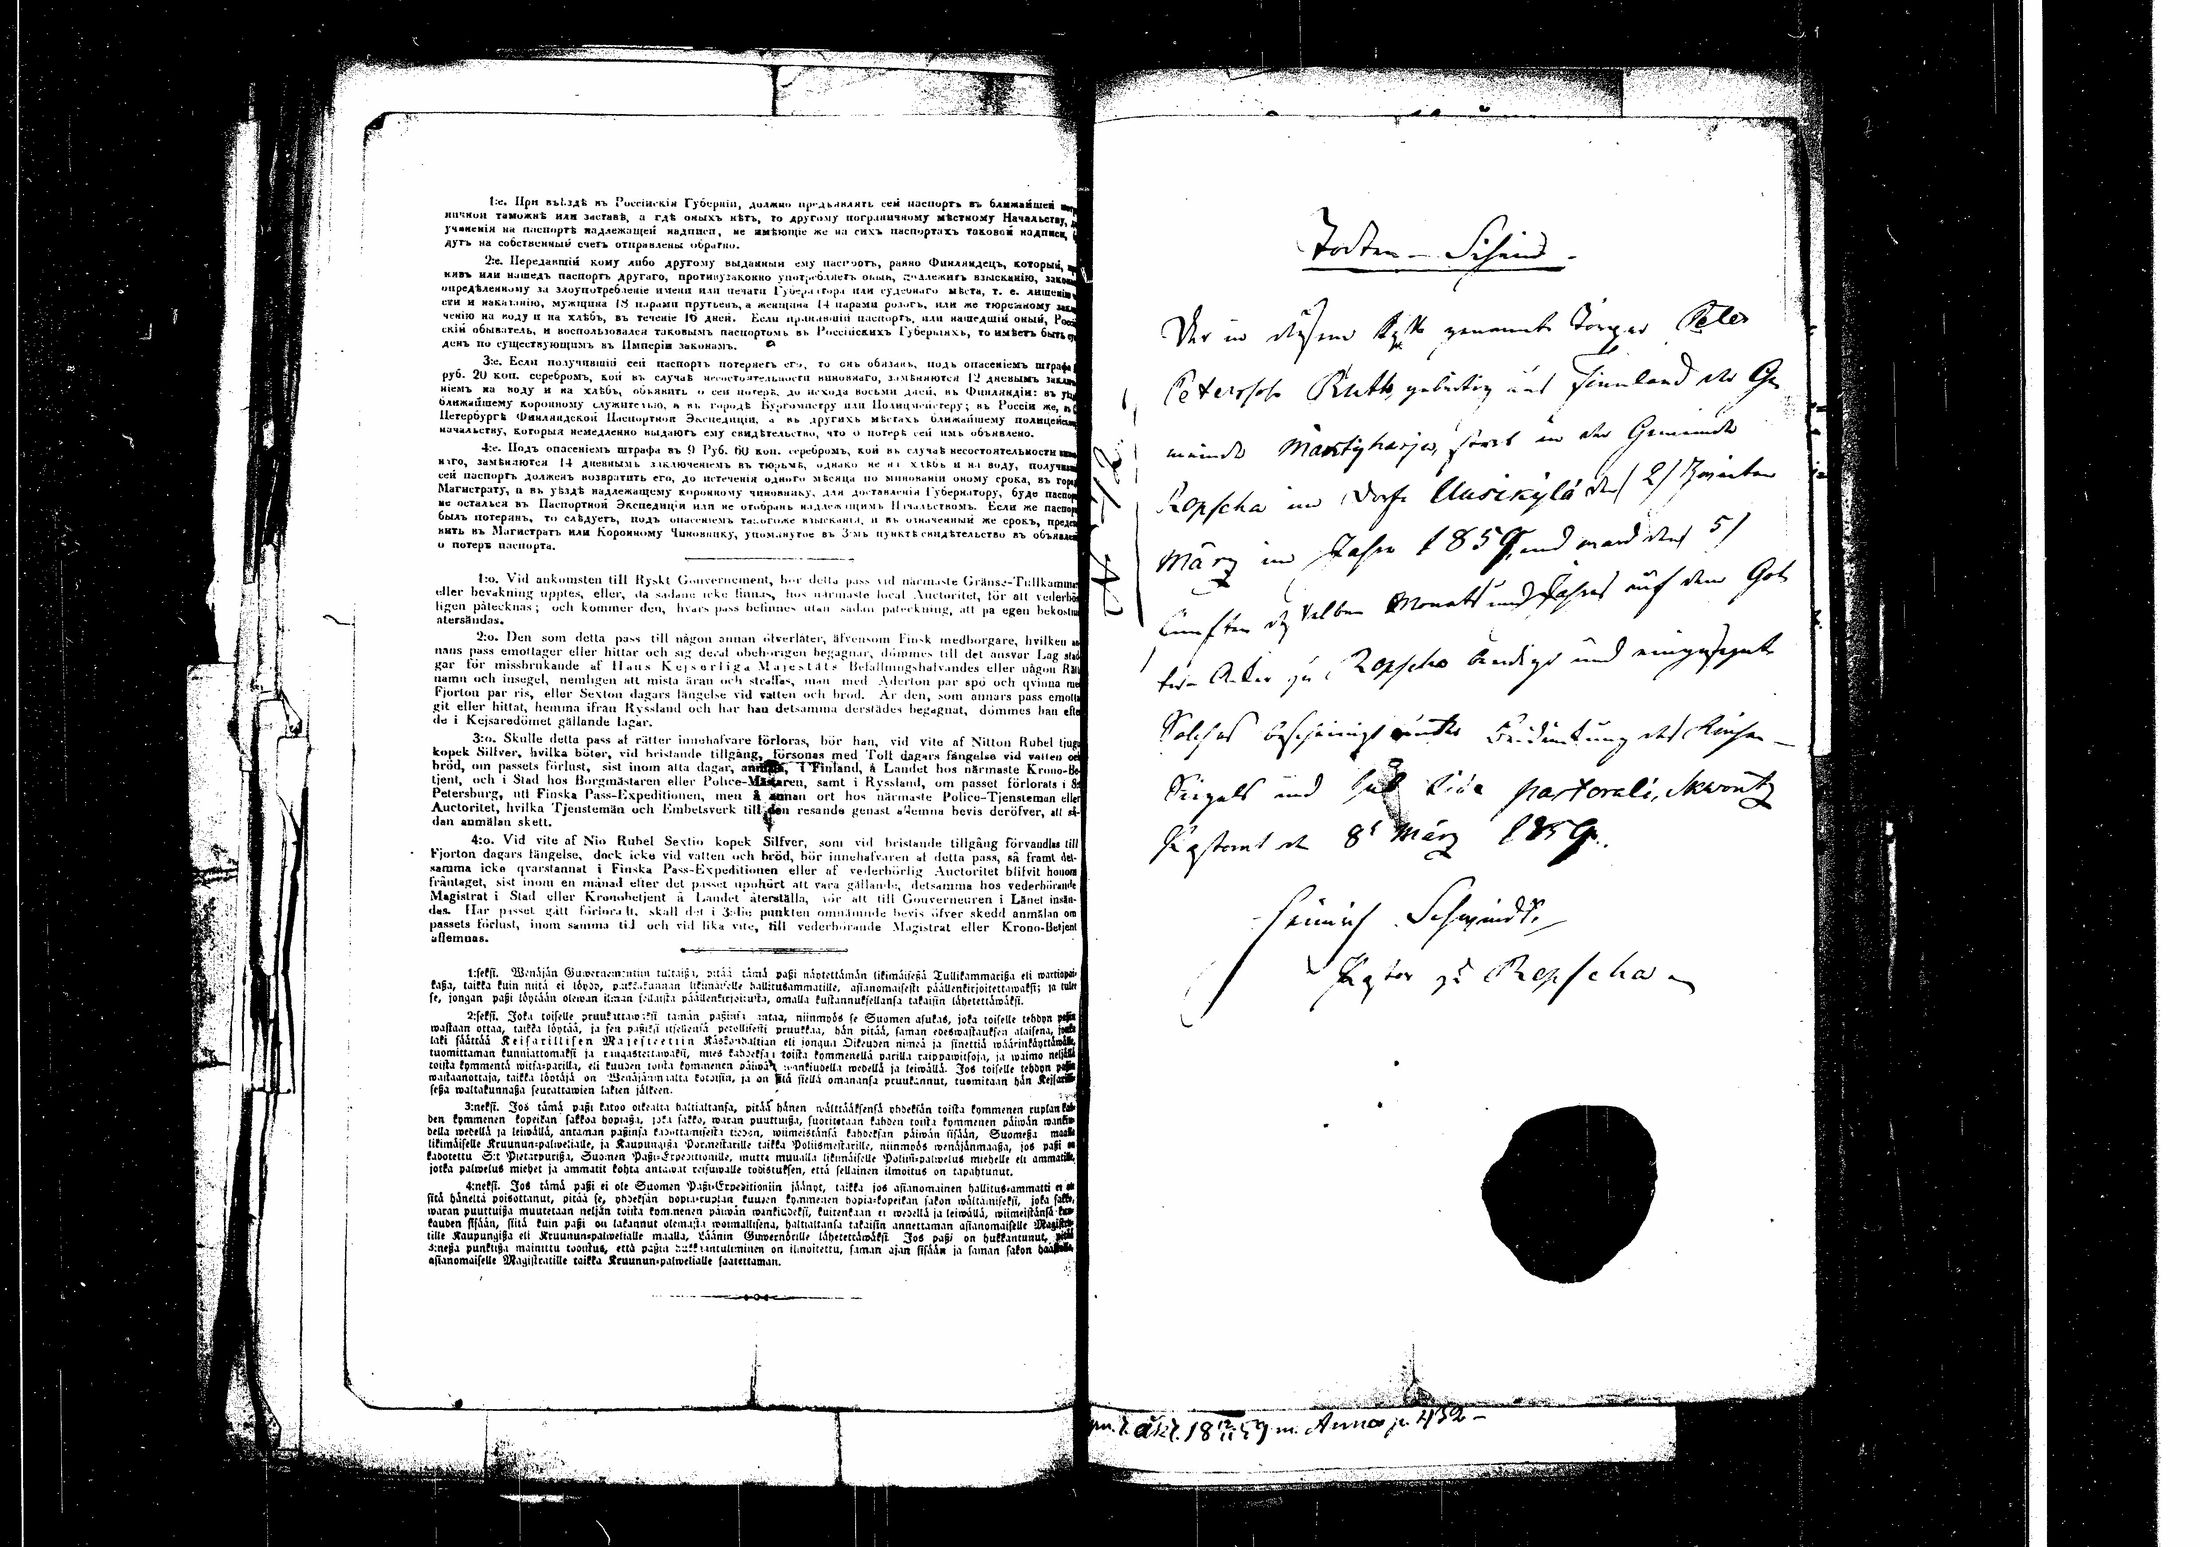 1:е. При въѣздѣ въ Россійскія Губерніи, должно предъявлять сей паспортъ въ ближайшей
ничной таможнѣ или заставѣ, а гдѣ оныхъ нѣтъ, то другому пограничному мѣстному Начальству,
учиненія на паспортѣ надлежащей надписи, не имѣющіе же на сихъ паспортахъ таковой надписи,
дутъ на собственный счетъ отправлены обратно.
2:е. Передавшій кому либо другому выданный ему паспортъ, равно Финляндецъ, который,
нявъ или нашедъ паспортъ другаго, противузаконно употребляетъ оный, подлежитъ взысканію,
опредѣленному за злоупотребленіе имени или печати Губернатора или судебнаго мѣста, т. е. лишенію
сти и наказанію, мужщина 18 парами прутьевъ, а женщина 14 парами розогъ, или же тюремному
ченію на воду и на хлѣбъ, въ теченіе 16 дней. Если принявшій паспортъ, или нашедшій оный,
скій обыватель, и воспользовался таковымъ паспортомъ въ Россійскихъ Губерніяхъ, то имѣетъ быть
денъ по существующимъ въ Имперіи законамъ.
3:е. Если получившій сей паспортъ потеряетъ его, то онъ обязанъ, подъ опасеніемъ штрафа
руб. 20 коп. серебромъ, кой въ случаѣ несостоятельности виновнаго, замѣняются 12 дневнымъ
ніемъ на воду и на хлѣбъ, объявить о сей потерѣ, до исхода восьми дней, въ Финляндіи: въ
ближайшему коронному служителю, а въ городѣ Бургомистру или Полицмейстеру; въ Россіи же,
Петербургѣ Финляндской Паспортной Экспедиціи, а въ другихъ мѣстахъ ближайшему
начальству, которыя немедленно выдаютъ ему свидѣтельство, что о потерѣ сей имъ объявлено.
4:е. Подъ опасеніемъ штрафа въ 9 Руб. 60 коп. серебромъ, кой въ случаѣ несостоятельности
наго, замѣняются 14 дневнымъ заключеніемъ въ тюрьмѣ, однако не на хлѣбъ и на воду,
сей паспортъ долженъ возвратить его, до истеченія одного мѣсяца по минованіи оному срока, въ
Магистрату, а въ уѣздѣ надлежащему коронному чиновнику, для доставленія Губернатору, буде
не остался въ Паспортной Экспедиціи или не отобранъ надлежащимъ Начальствомъ. Если же
былъ потерянъ, то слѣдуетъ, подъ опасеніемъ такогоже взысканія, и въ означенный же срокъ,
вить въ Магистратъ или Коронному Чиновнику, упомянутое въ 3-мъ пунктѣ свидѣтельство въ
о потерѣ паспорта.
1:o. Vid ankomsten till Ryskt Gouvernement, bör detta pass vid närmaste Gränse-Tullkammare
eller bevakning upptes, eller, då sådane icke finnas, hos närmaste local Auctoritet, för att
ligen påtecknas; och kommer den, hvars pass befinnes utan sådan påteckning, att på egen bekostnad
återsändas.
2:o. Den som detta pass till någon annan öfverlåter, äfvensom Finsk medborgare, hvilken
nans pass emottager eller hittar och sig deraf obehörigen begagnar, dömmes till det ansvar Lag
gar för missbrukande af Hans Kejserliga Majestäts Befallningshafvandes eller någon
namn och insegel, nemligen att mista äran och straffas, man med Aderton par spö och qvinna med
Fjorton par ris, eller Sexton dagars fängelse vid vatten och bröd. Är den, som annars pass
git eller hittat, hemma ifrån Ryssland och har han detsamma derstädes begagnat, dömmes han efter
de i Kejsaredömet gällande lagar.
3:o. Skulle detta pass af rätter innehafvare förloras, bör han, vid vite af Nitton Rubel tjugo
kopek Silfver, hvilka böter, vid bristande tillgång, försonas med Tolf dagars fängelse vid vatten och
bröd, om passets förlust, sist inom åtta dagar, anmäla, i Finland, å Landet hos närmaste Krono-Be-
tjent, och i Stad hos Borgmästaren eller Police-Mästaren, samt i Ryssland, om passet förlorats i S:t
Petersburg, uti Finska Pass-Expeditionen, men å annan ort hos närmaste Police-Tjensteman eller
Auctoritet, hvilka Tjenstemän och Embetsverk till den resande genast aflemna bevis deröfver, att så-
dan anmälan skett.
4:o. Vid vite af Nio Rubel Sextio kopek Silfver, som vid bristande tillgång förvandlas till
Fjorton dagars fängelse, dock icke vid vatten och bröd, bör innehafvaren af detta pass, så framt det-
samma icke qvarstannat i Finska Pass-Expeditionen eller af vederbörlig Auctoritet blifvit honom
fråntaget, sist inom en månad efter det passet upphört att vara gällande, detsamma hos vederbörande
Magistrat i Stad eller Kronobetjent å Landet återställa, för att till Gouverneuren i Länet insän-
das. Har passet gått förloradt, skall det i 3:dje punkten omnämnde bevis öfver skedd anmälan om
passets förlust, inom samma tid och vid lika vite, till vederbörande Magistrat eller Krono-Betjent
aflemnas.
1:seksi. Wenäjän Guwernementiin tultaissa, pitää tämä passi näytettämän likimäisessä Tullikammarissa eli
kassa, taikka kuin niitä ei löydy, paikkakunnan likimäiselle hallitusammatille, asianomaisesti päällenkirjoitettawaksi; ja tulee
se, jongan passi löytään olewan ilman sellaista päällenkirjoitusta, omalla kustannuksellansa takaisin lähetettäwäksi.
2:seksi. Joka toiselle pruukattawaksi tämän passinsa antaa, niinmyös se Suomen asukas, joka toiselle tehdyn passin
wastaan ottaa, taikka löytää, ja sen passiksi itsellensä petollisesti pruukkaa, hän pitää, saman edeswastauksen alaisena,
laki säättää Keisarillisen Majesteetin Käskynhaltian eli jongun Oikeuden nimeä ja sinettiä wäärinkäyttämällä,
tuomittaman kunniattomaksi ja rangastettawaksi, mies kahdeksan toista kymmenellä parilla raippawitsoja, ja waimo neljällä
toista kymmentä witsa-parilla, eli kuuden toista kymmenen päiwän wankiudella wedellä ja leiwällä. Jos toiselle tehdyn passin
wastaanottaja, taikka löytäjä on Wenäjänmaalta kotoisin, ja on sitä siellä omanansa pruukannut, tuomitaan hän
sessa waltakunnassa seurattawien lakien jälkeen.
3:neksi. Jos tämä passi katoo oikealta haltialtansa, pitää hänen wälttääksensä yhdeksän toista kymmenen ruplan
den kymmenen kopeikan sakkoa hopiassa, joka sakko, waran puuttuissa, suoritetaan kahden toista kymmenen päiwän
della wedellä ja leiwällä, antaman passinsa kadottamisesta tiedon, wiimeistänsä kahdeksan päiwän sisään, Suomessa maalla
likimäiselle Kruunun-palwelialle, ja Kaupungissa Pormestarille taikka Poliismestarille, niinmyös wenäjänmaassa, jos passi on
kadotettu S:t Pietarpurissa, Suomen Passi-Expeditionille, mutta muualla likimäiselle Poliisi-palwelus miehelle eli ammatille,
jotka palwelus miehet ja ammatit kohta antawat reisuwalle todistuksen, että sellainen ilmoitus on tapahtunut.
4:neksi. Jos tämä passi ei ole Suomen Passi-Expeditioniin jäänyt, taikka jos asianomainen hallitus-ammatti ei
sitä häneltä poisottanut, pitää se, yhdeksän hopia-ruplan kuuden kymmenen hopia-kopeikan sakon wältämiseksi, joka sakko,
waran puuttuissa muutetaan neljän toista kymmenen päiwän wankiudeksi, kuitenkaan ei wedellä ja leiwällä, wiimeistänsä
kauden sisään, siitä kuin passi on lakannut olemasta woimallisena, haltialtansa takaisin annettaman asianomaiselle
tille Kaupungissa eli Kruunun-palwelialle maalla, Läänin Guwernörille lähetettäwäksi. Jos passi on hukkantunut,
3:nessa punktissa mainittu todistus, että passin hukkantuluminen on ilmoitettu, saman ajan sisään ja saman sakon
asianomaiselle Magistratille taikka Kruunun-palwelialle saatettaman.
Todten-Schein
Der in diesem genannte Peter
Petersohn Rutt, gebürtig aus Finnland der Ge
meinde starb in der Gemeinde
Ropscha im Dorfe Uusikylä den 2/ zweiten
März im Jahre 1859, und ward den 5/
fünften desselben Monats und Jahres auf dem Got
tes-Acker zu Ropscha beerdigt und eingesegnet
Solches bescheinigt unter des Kirchen-
Siegels und sub fide pastorali, Skworitz
Pastorat d 8t März 1859.
Heinrich Schwindt,
Pastor zu Ropscha